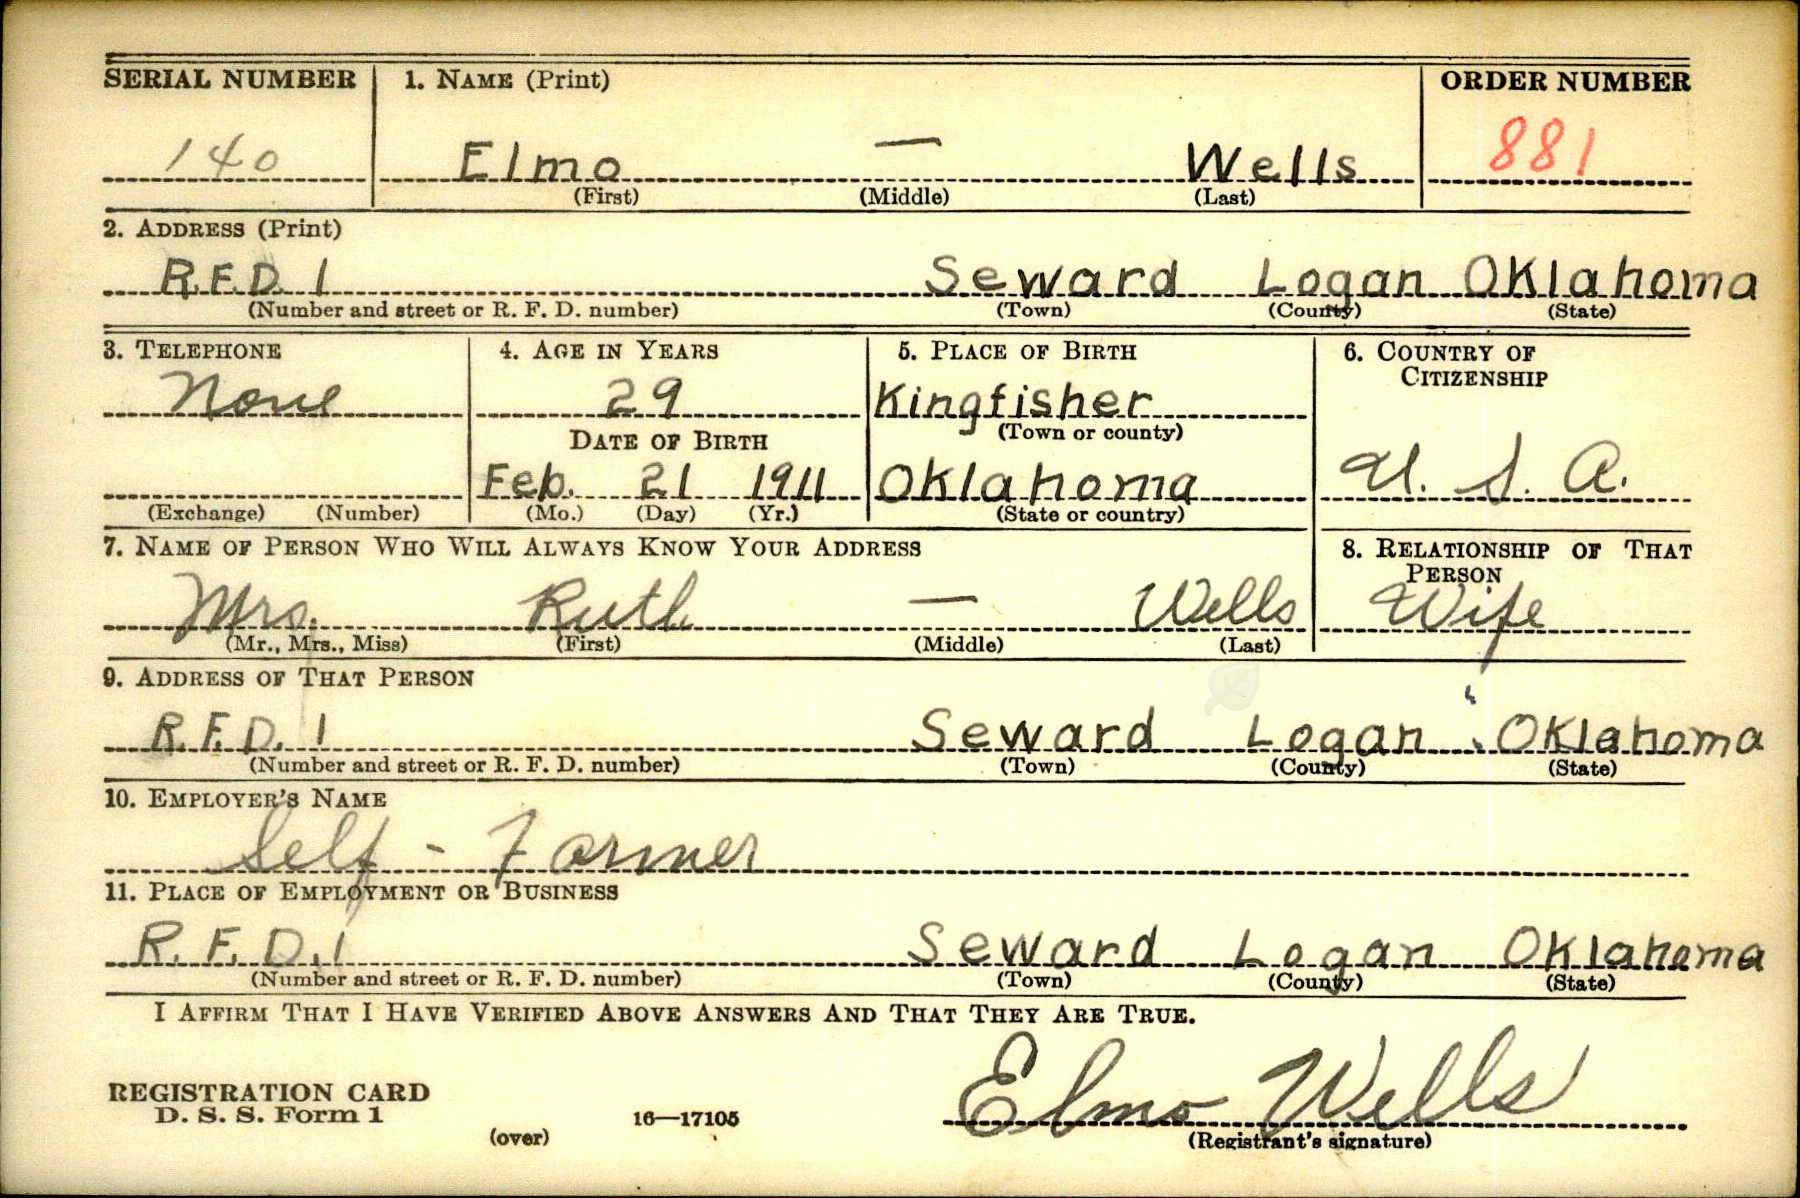 SERIAL NUMBER 1. NAME (Print) ORDER NUMBER
140 Elmo — Wells 881
(First) (Middle) (Last)
2. ADDRESS (Print)
R.F.D. 1 Seward Logan Oklahoma
(Number and street or R. F. D. number) (Town) (County) (State)
3. TELEPHONE 4. AGE IN YEARS 5. PLACE OF BIRTH 6. COUNTRY OF CITIZENSHIP
None 29 Kingfisher
(Town or county)
DATE OF BIRTH
Feb. 21 1911 Oklahoma U. S. A.
(Exchange) (Number) (Mo.) (Day) (Yr.) (State or country)
7. NAME OF PERSON WHO WILL ALWAYS KNOW YOUR ADDRESS 8. RELATIONSHIP OF THAT PERSON
Mrs. Ruth — Wells Wife
(Mr., Mrs., Miss) (First) (Middle) (Last)
9. ADDRESS OF THAT PERSON
R.F.D. 1 Seward Logan Oklahoma
(Number and street or R. F. D. number) (Town) (County) (State)
10. EMPLOYER'S NAME
Self - Farmer
11. PLACE OF EMPLOYMENT OR BUSINESS
R.F.D. 1 Seward Logan Oklahoma
(Number and street or R. F. D. number) (Town) (County) (State)
I AFFIRM THAT I HAVE VERIFIED ABOVE ANSWERS AND THAT THEY ARE TRUE.
REGISTRATION CARD
D. S. S. Form 1 16—17105 Elmo Wells
(over) (Registrant's signature)